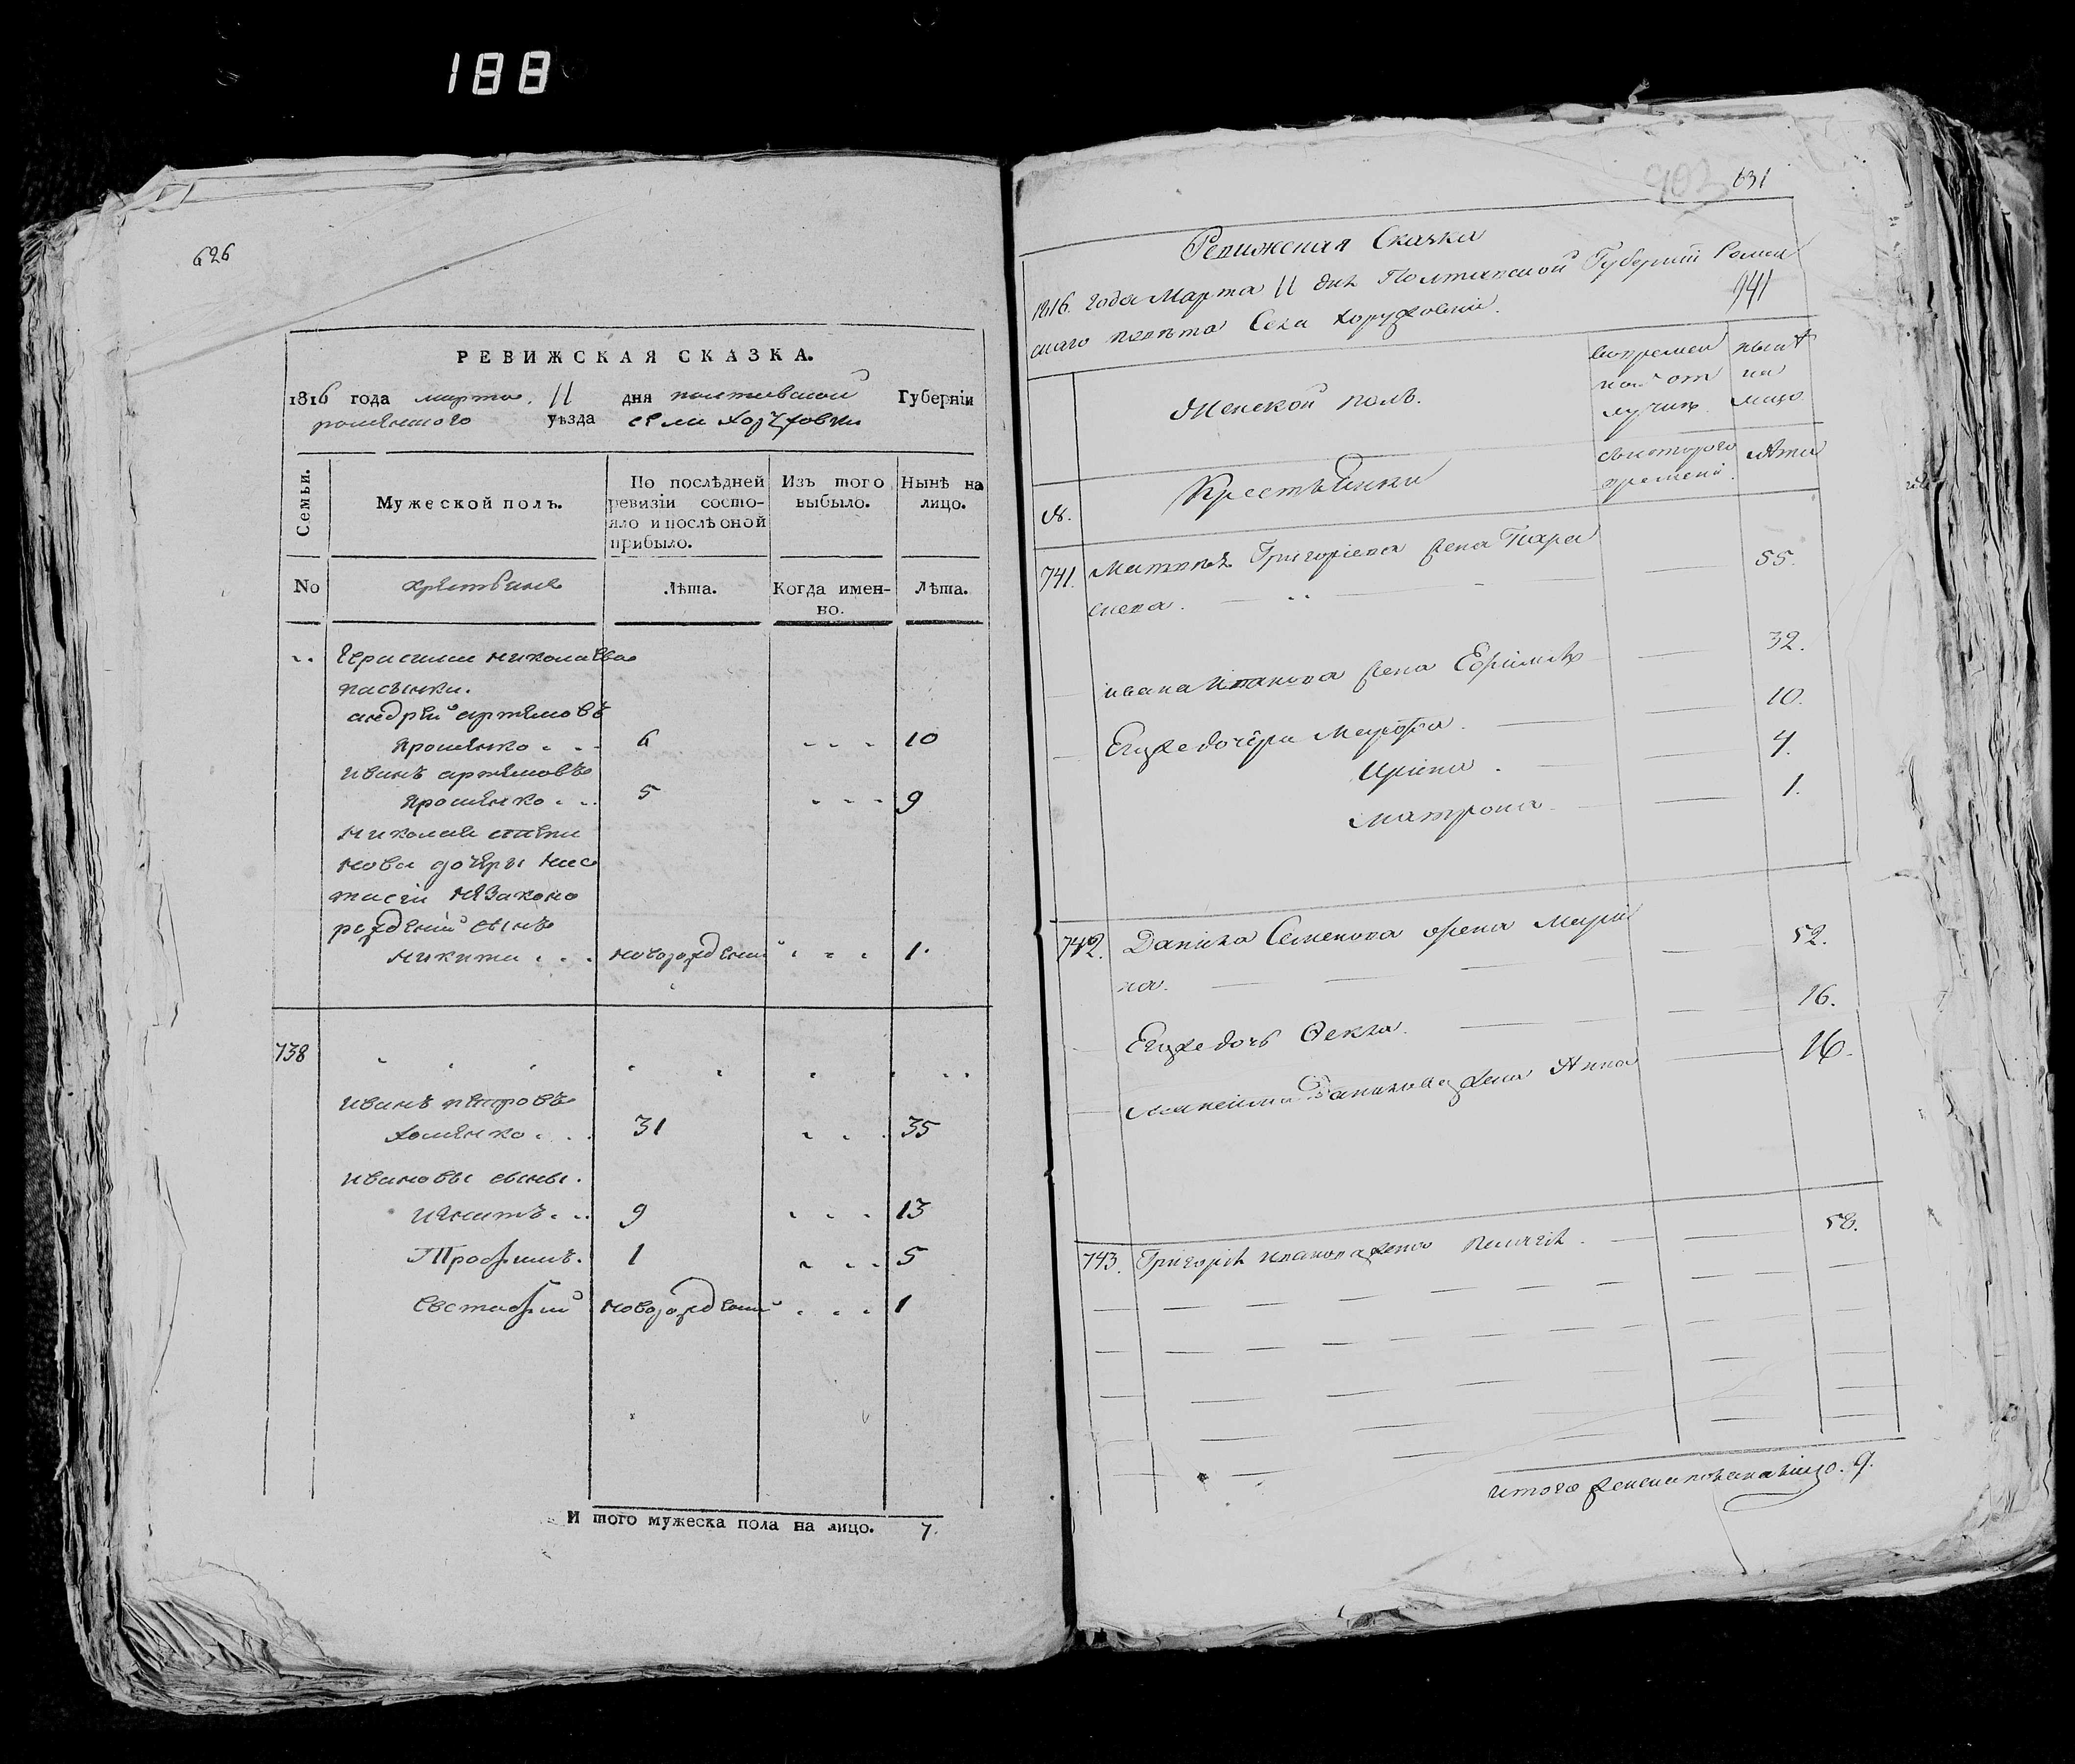 188
626
РЕВИЖСКАЯ СКАЗКА.
1816 года марта 11 дня полтавской Губерніи
роменского уѣзда села Хоружовки
Семьи.
Мужеской полъ.
По послѣдней ревизіи состояло и послѣ оной прибыло.
Изъ того выбыло.
Нынѣ на лицо.
No
Лѣта.
Когда именно.
Лѣта.
Герасима николаева
пасынки.
андрей артемовъ
Ярошенко 6 10
иванъ артемовъ
Ярошенко 5 9
николая
нова дочеры нас
тасіи незаконо
рожденій сынъ
никита новорожденій 1.
738
иванъ петровъ
хоменко 31 35
ивановы сыны.
игнатъ 9 13
Трофимъ. 1 5
Евстафій новорожденій 1
И того мужеска пола на лицо. 7.
903 631
Ревижская Сказка
1816. года Марта 11 дня Полтавской Губерніи Ромен
941
скаго повѣта Села Хоружовки.
Женской полъ.
вовремен
ной от
лучкѣ.
нынѣ
на
лицо
съкоторого
времени.
лѣта
№.
Крестьянки
741. Матвѣя Григоріева жена Пара 55.
скева.
ивана иванова жена Ефимія 32.
Егожедочери Марфа 10.
Ирина 4.
Матрона 1.
742. Данила Семенова жена Мари 52.
на.
Егожедочь Фекла. 16.
Максима Данилова жена Анна 16.
743. Григорія иванова жена 58.
итого женска пола налицо. 9.